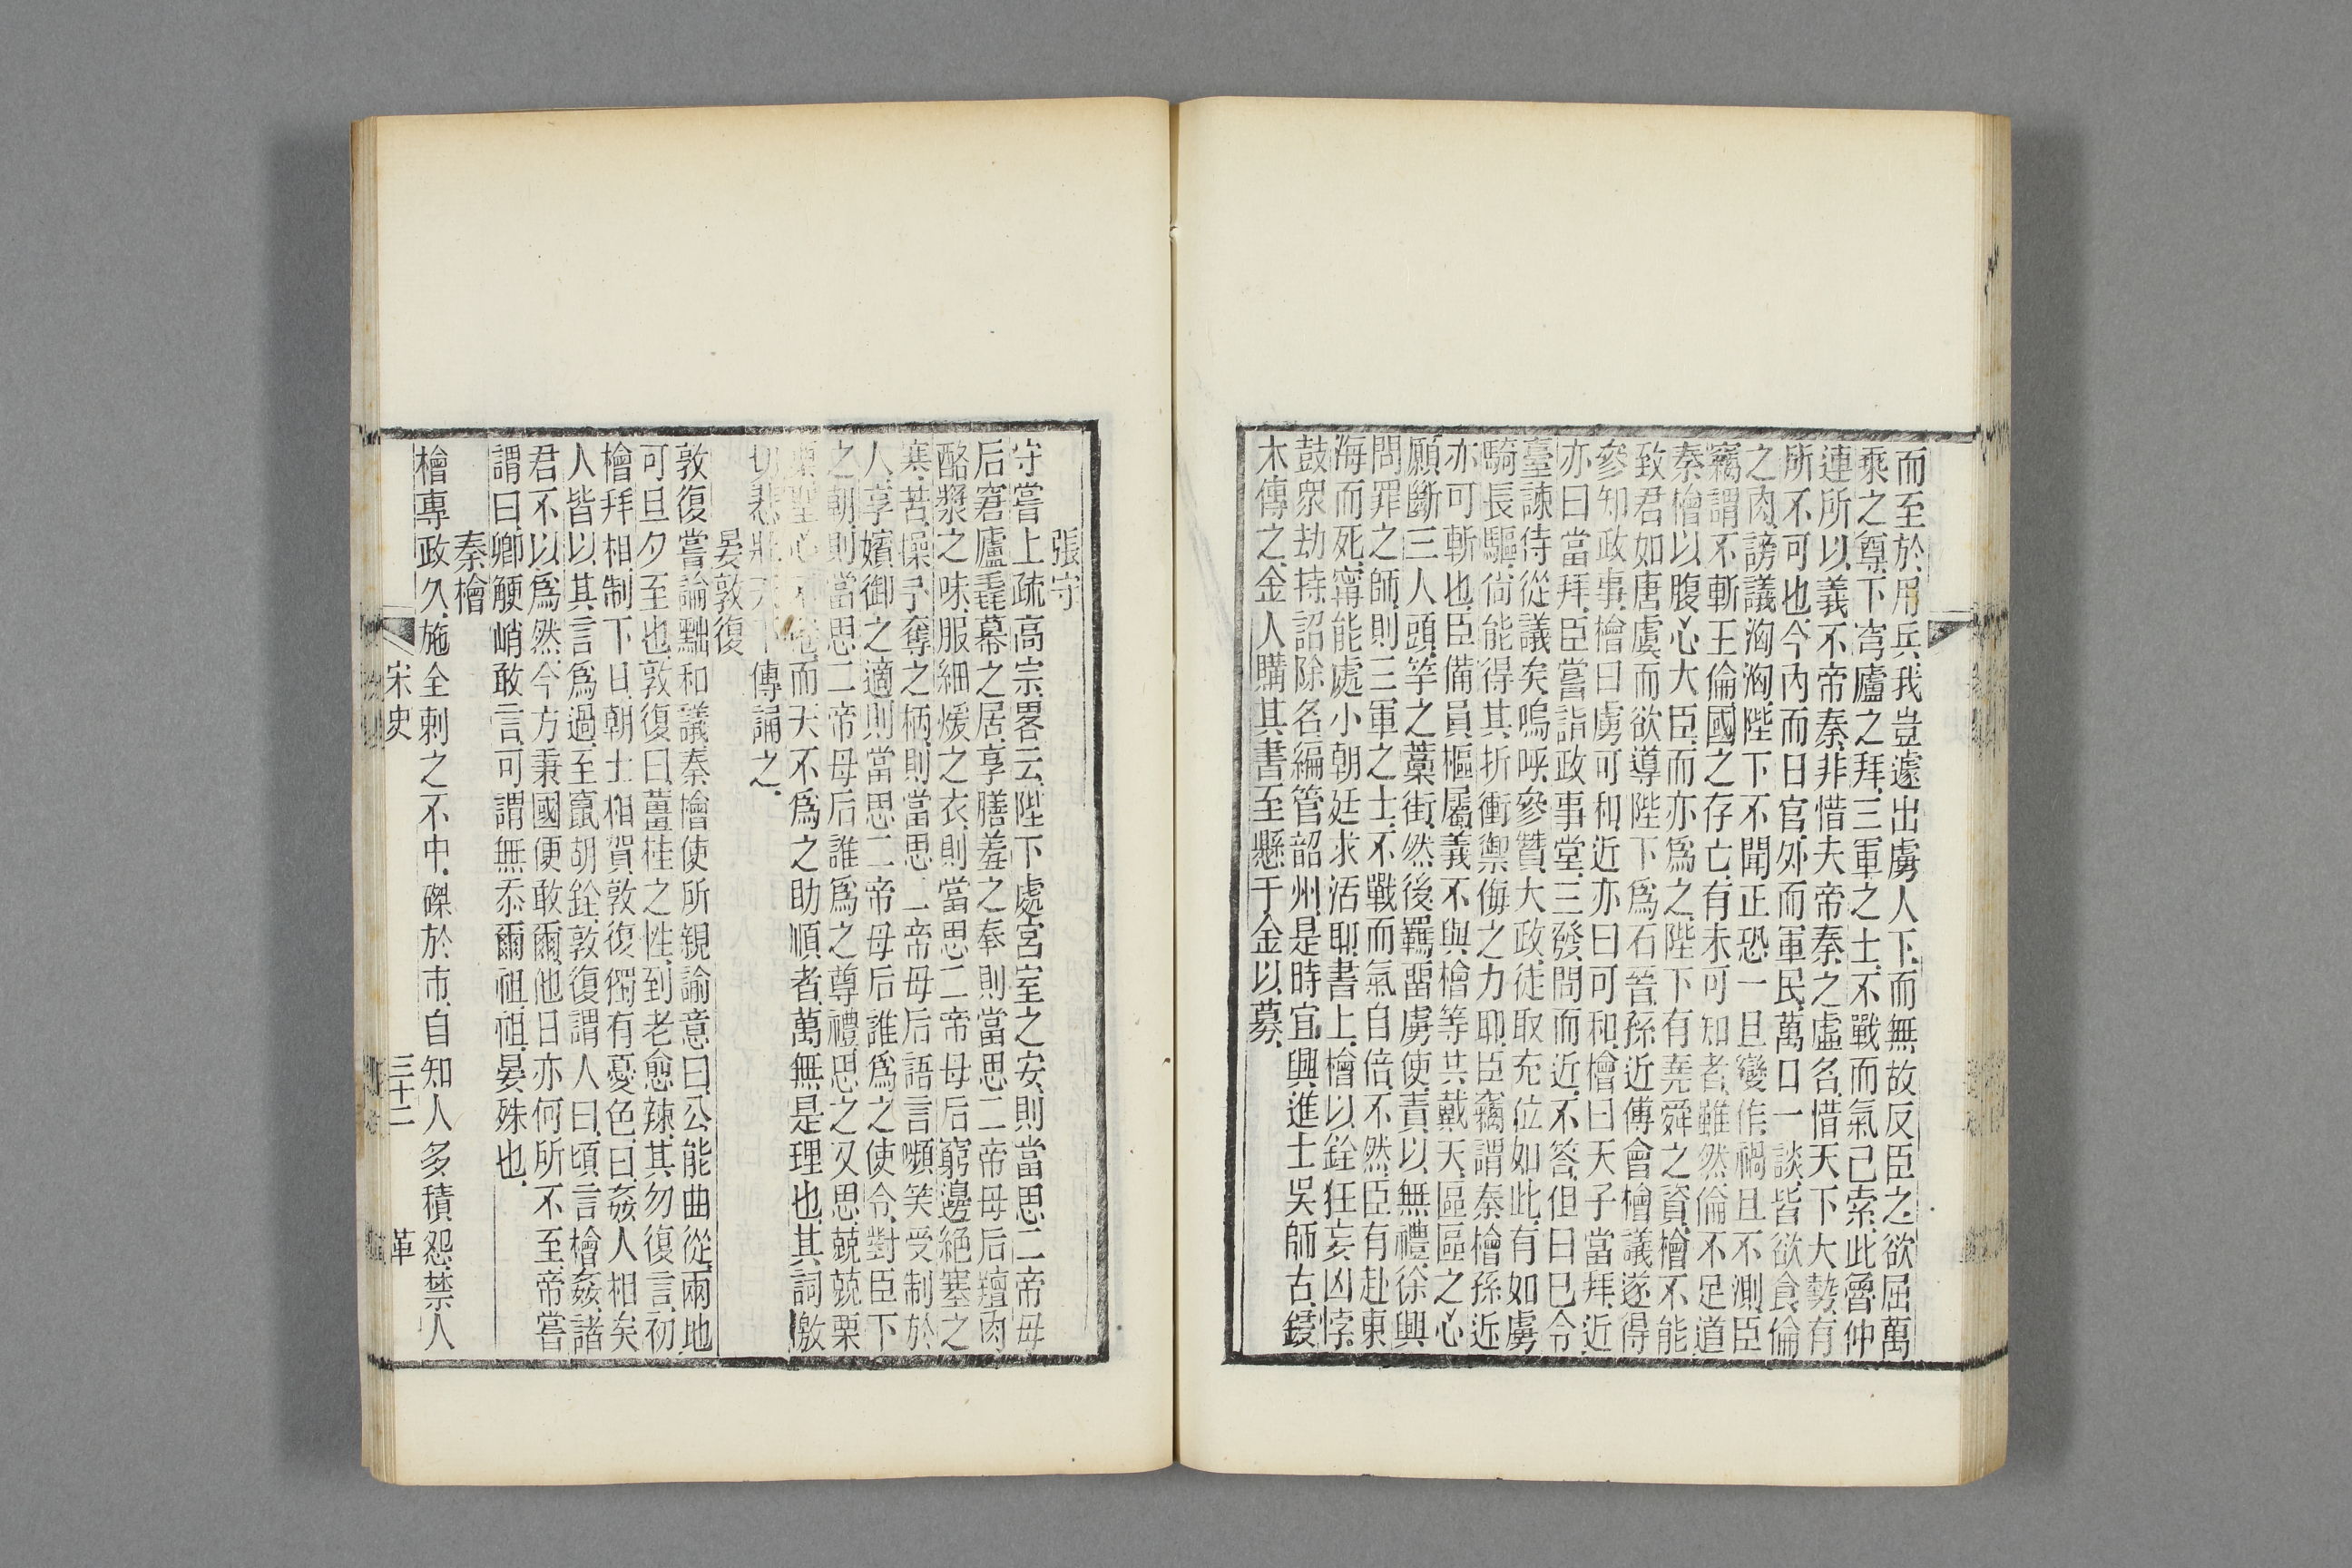 而至於用兵我豈遽出虜人下而無故反臣之欲屈萬
乘之尊下穹廬之拜三軍之士不戰而氣已索此魯仲
連所以義不帝秦非惜夫帝秦之虛名惜天下大勢有
所不可也今內而日官外而軍民萬口一談皆欲食倫
之肉謗議洶洶陛下不聞正恐一旦變作禍且不測臣
竊謂不斬王倫國之存亡有未可知者雖然倫不足道
秦檜以腹心大臣而亦爲之陛下有堯舜之資檜不能
致君如唐虞而欲導陛下爲石晉孫近傅會檜議遂得
參知政事檜曰虜可和近亦曰可和檜曰天子當拜近
亦曰當拜臣嘗詣政事堂三發問而近不答但曰已令
臺諫侍從議矣嗚呼參贊大政徒取充位如此有如虜
騎長驅尚能得其折衝禦侮之力耶臣竊謂秦檜孫近
亦可斬也臣備員樞屬義不與檜等共戴天區區之心
願斷三人頭竿之藁街然後羈畱虜使責以無禮徐興
問罪之師則三軍之士不戰而氣自倍不然臣有赴東
海而死甯能處小朝廷求活耶書上檜以銓狂妄凶悖
鼓衆劫持詔除名編管韶州是時宜興進士吳師古鋟
木傳之金人購其書至懸于金以募
張守
守嘗上疏高宗畧云陛下處宮室之安則當思二帝母
后窘廬毳幕之居享膳羞之奉則當思二帝母后羶肉
酪漿之味服細煖之衣則當思二帝母后窮邊絕塞之
寒苦操予奪之柄則當思二帝母后語言嚬笑受制於
人享嬪御之適則當思二帝母后誰爲之使令對臣下
之朝則當思二帝母后誰爲之尊禮思之又思兢兢栗
聖心不而天不爲之助順者萬無是理也其詞激
切悲壯天下傳誦之
晏敦復
敦復嘗論黜和議秦檜使所親諭意曰公能曲從兩地
可旦夕至也敦復曰薑桂之性到老愈辣其勿復言初
檜拜相制下日朝士相賀敦復獨有憂色曰姦人相矣
人皆以其言爲過至竄胡銓敦復謂人曰頃言檜姦諸
君不以爲然今方秉國便敢爾他日亦何所不至帝嘗
謂曰卿鯁峭敢言可謂無忝爾祖祖晏殊也
秦檜
檜專政久施全刺之不中磔於市自知人多積怨禁人
宋史　三十二　革